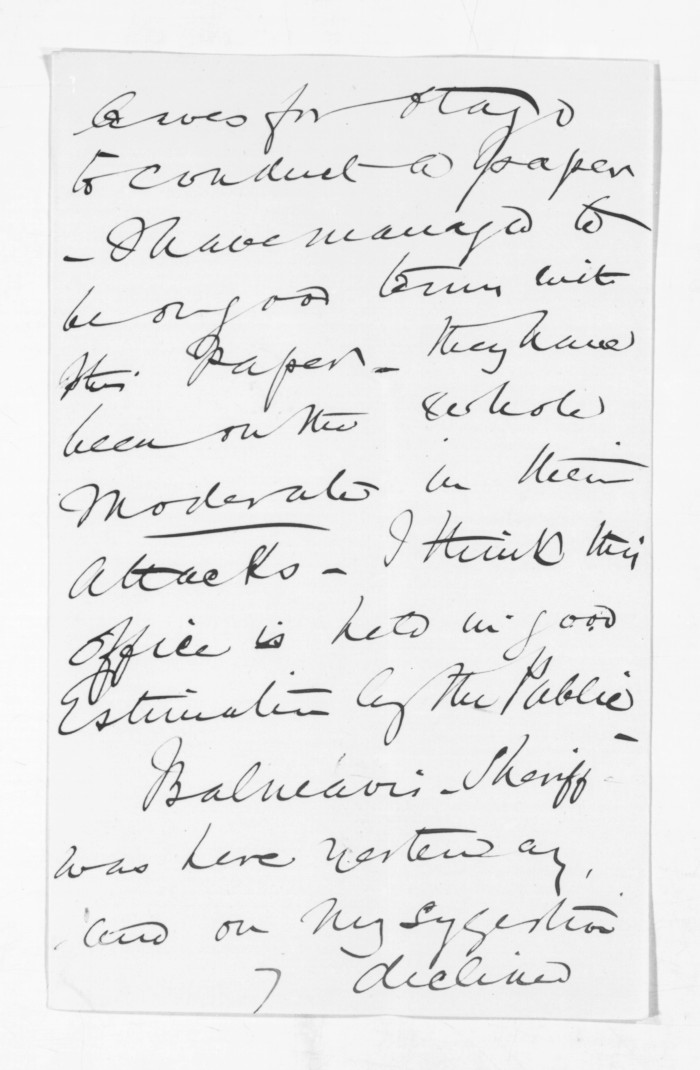 leaves for Otago
to conduct a paper
- I have managed to
be on good terms with
this Paper - they have
been on the whole
moderate in their
attacks - I think this
office is held in good
Estimation by the Public -
Balneavis - Sheriff
was here yesterday,
and on my sygestion
declined